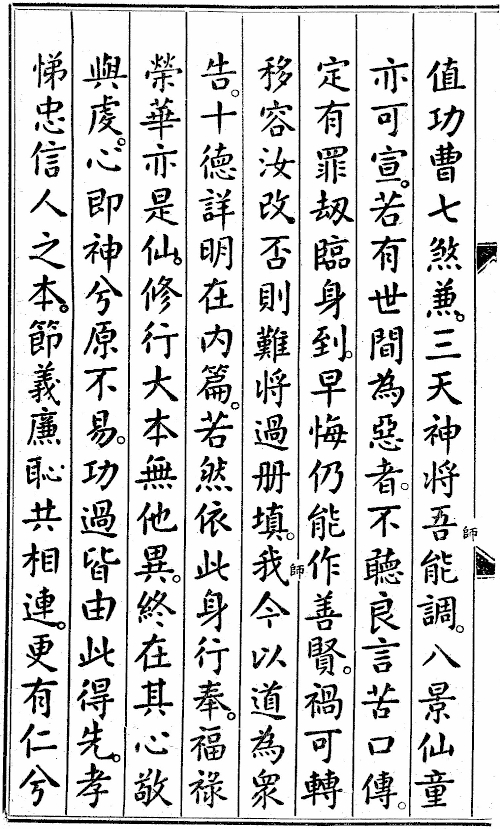 值功曹七煞兼。三天神將吾師能調。八景仙童
亦可宣。若有世間為惡者。不聽良言苦口傳。
定有罪刼臨身到。早悔仍能作善賢。禍可轉
移容汝改否則難將過册填。我師今以道為衆
告。十德詳明在內篇。若然依此身行奉。福祿
榮華亦是仙。修行大本無他異。終在其心敬
與虔。心即神兮原不易。功過皆由此得先。孝
悌忠信人之本。節義廉恥共相連。更有仁兮